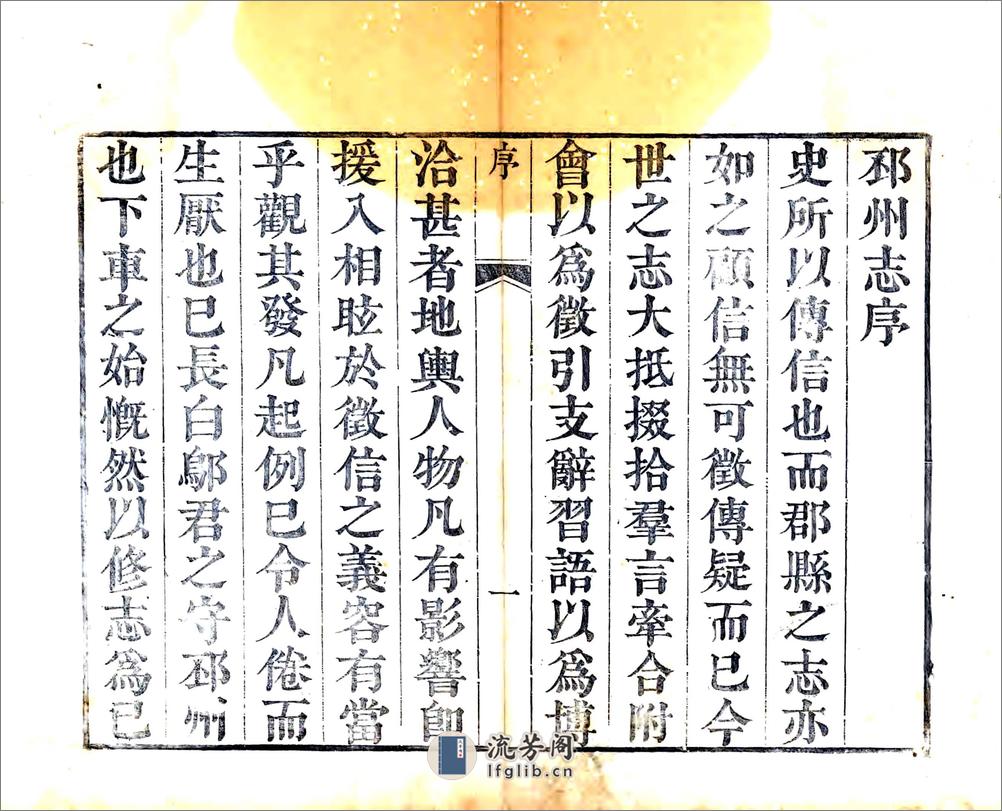 邳州志序
史所以傳信也而郡縣之志亦
如之顧信無可徵傳疑而已今
世之志大抵掇拾羣言牽合附
會以爲徵引支辭習語以爲博
序
一
洽甚者地輿人物凡有影響即
援入相眩於徵信之義容有當
乎觀其發凡起例已令人倦而
生厭也已長白鄔君之守邳州
也下車之始慨然以修志爲已
流芳阁
lfglib.cn